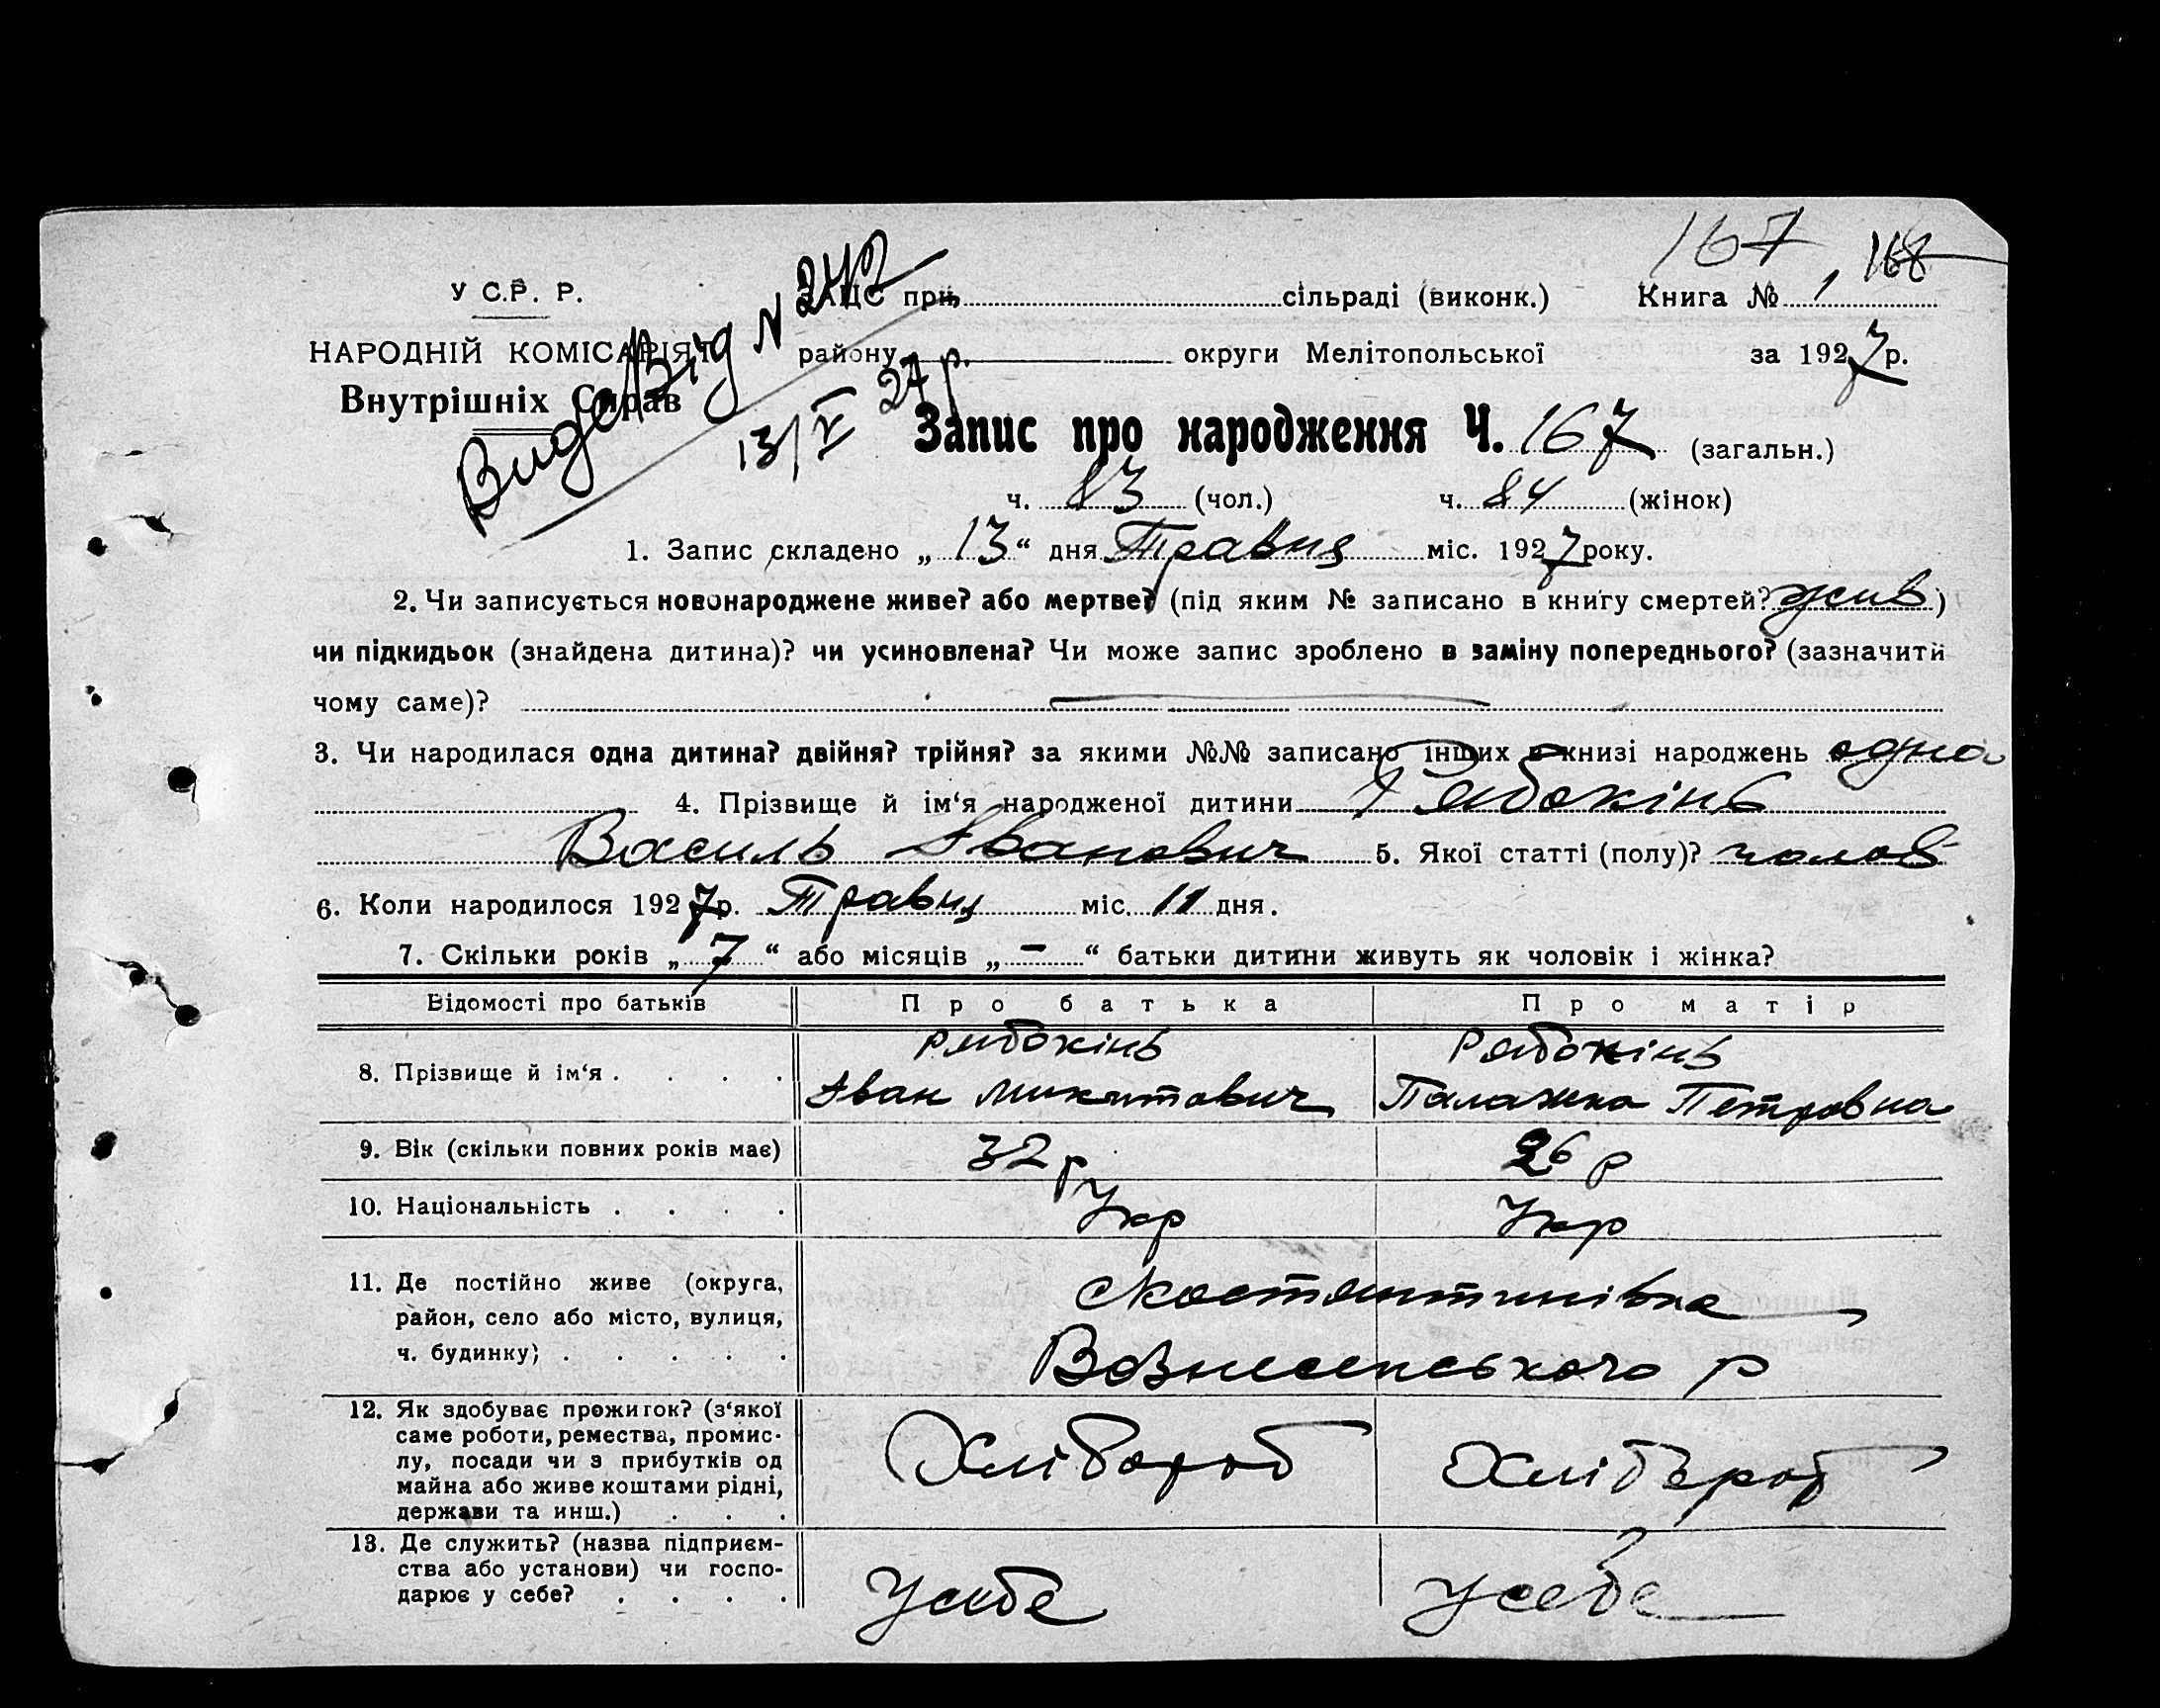 167 168
У С.Р. Р. ЗАЦС при сільраді (виконк.) Книга № 1
НАРОДНІЙ КОМІСАРІЯТ району округи Мелітопольської за 1927 р.
Внутрішніх Справ
Видан від N 242
13/V 27 р.
Запис про народження Ч. 167 (загальн.)
ч. 83 (чол.) ч. 84 (жінок)
1. Запис складено „ 13 “ дня Травця міс. 1927 року.
2. Чи записується новонароджене живе? або мертве? (під яким № записано в книгу смертей? жив )
чи підкидьок (знайдена дитина)? чи усиновлена? Чи може запис зроблено в заміну попереднього? (зазначити
чому саме)?
3. Чи народилася одна дитина? двійня? трійня? за якими №№ записано інших в книзі народжень одна
4. Прізвище й ім‘я народженої дитини Рябокінь
Василь Іванович 5. Якої статті (полу)? чолов
6. Коли народилося 1927 р. Травця міс. 11 дня.
7. Скільки років „ 7 “ або місяців „ – “ батьки дитини живуть як чоловік і жінка?
Відомості про батьків Про батька Про матір
8. Прізвище й ім‘я . . . . Рябокінь Рябокінь
Іван Микитович Палажка Петровна
9. Вік (скільки повних років має) 32 р 26 р
10. Національність . . . . Укр Укр
11. Де постійно живе (округа, Костянтинівка
район, село або місто, вулиця,
ч. будинку) . . . . . Вознесенського р
12. Як здобуває прожиток? (з‘якої
саме роботи, ремества, промис-
лу, посади чи з прибутків од Хлібороб Хлібороб
майна або живе коштами рідні,
держави та инш.) . . .
13. Де служить? (назва підприєм-
ства або установи) чи госпо-
дарює у себе? . . . . У себе У себе